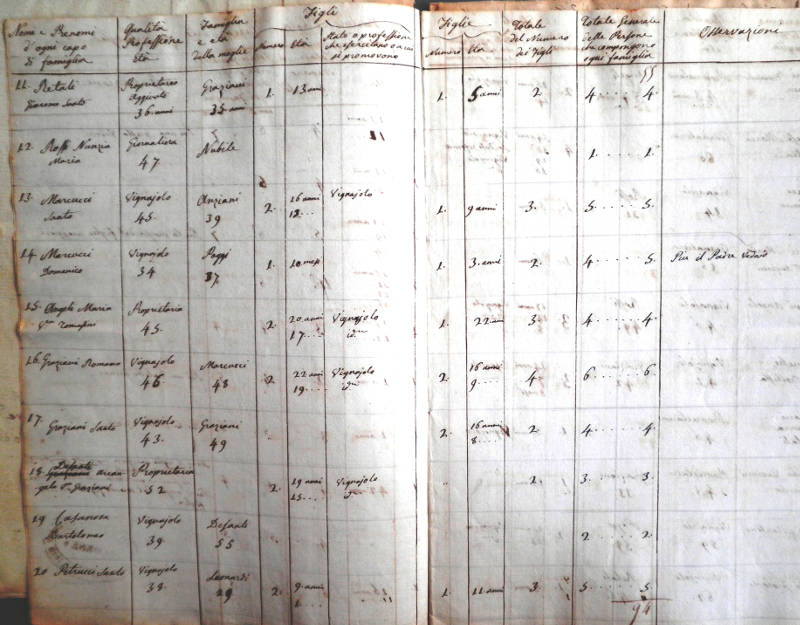 Nome e Prenomi d'ogni capo di famiglia
Qualità Professione Età
Famiglia e età della moglie
Figli
Numero Età Stato o professione che esercitano o a cui si promovono
Figlie
Numero Età
Totale del Numero dei Figli
Totale Generale delle Persone che compongono ogni famiglia
Osservazioni
55
11. Retali Proprietario Graziani 1. 13 anni 1. 5 anni 2. 4 4.
Giacomo Santo 36 anni 35 anni
12. Rossi Nunzia Giornaliera Nubile 1. 1.
Maria 47
13. Marcucci Vignajolo Anziani 2. 16 anni Vignajolo 1. 9 anni 3. 5 5.
Santo 45 39 12
14. Marcucci Vignajolo Poggi 1. 10 mesi 1. 3. anni 2. 4 5. Più il Padre Vedovo
Domenico 34 37
15. Angela Maria Proprietaria 2. 20 anni Vignajolo 1. 22 anni 3 4 4.
45 17 id.m
16. Graziani Romano Vignajolo Marcucci 2. 22 anni Vignajolo 2. 16 anni 4. 6 6.
46 48 19 id.m 9
17. Graziani Santo Vignajolo Graziani 2. 16 anni 2. 4 4.
43. 49 8
18. Defanti Proprietaria 2. 19 anni Vignajolo 2. 3 3.
Graziani 52 15 id.m
19 Casanova Vignajolo Defanti 2 2.
Bartolomeo 39 55
20 Petrucci Santo Vignajolo Leonardi 2. 9. anni 1. 11 anni 3. 5 5.
38 29 1
94